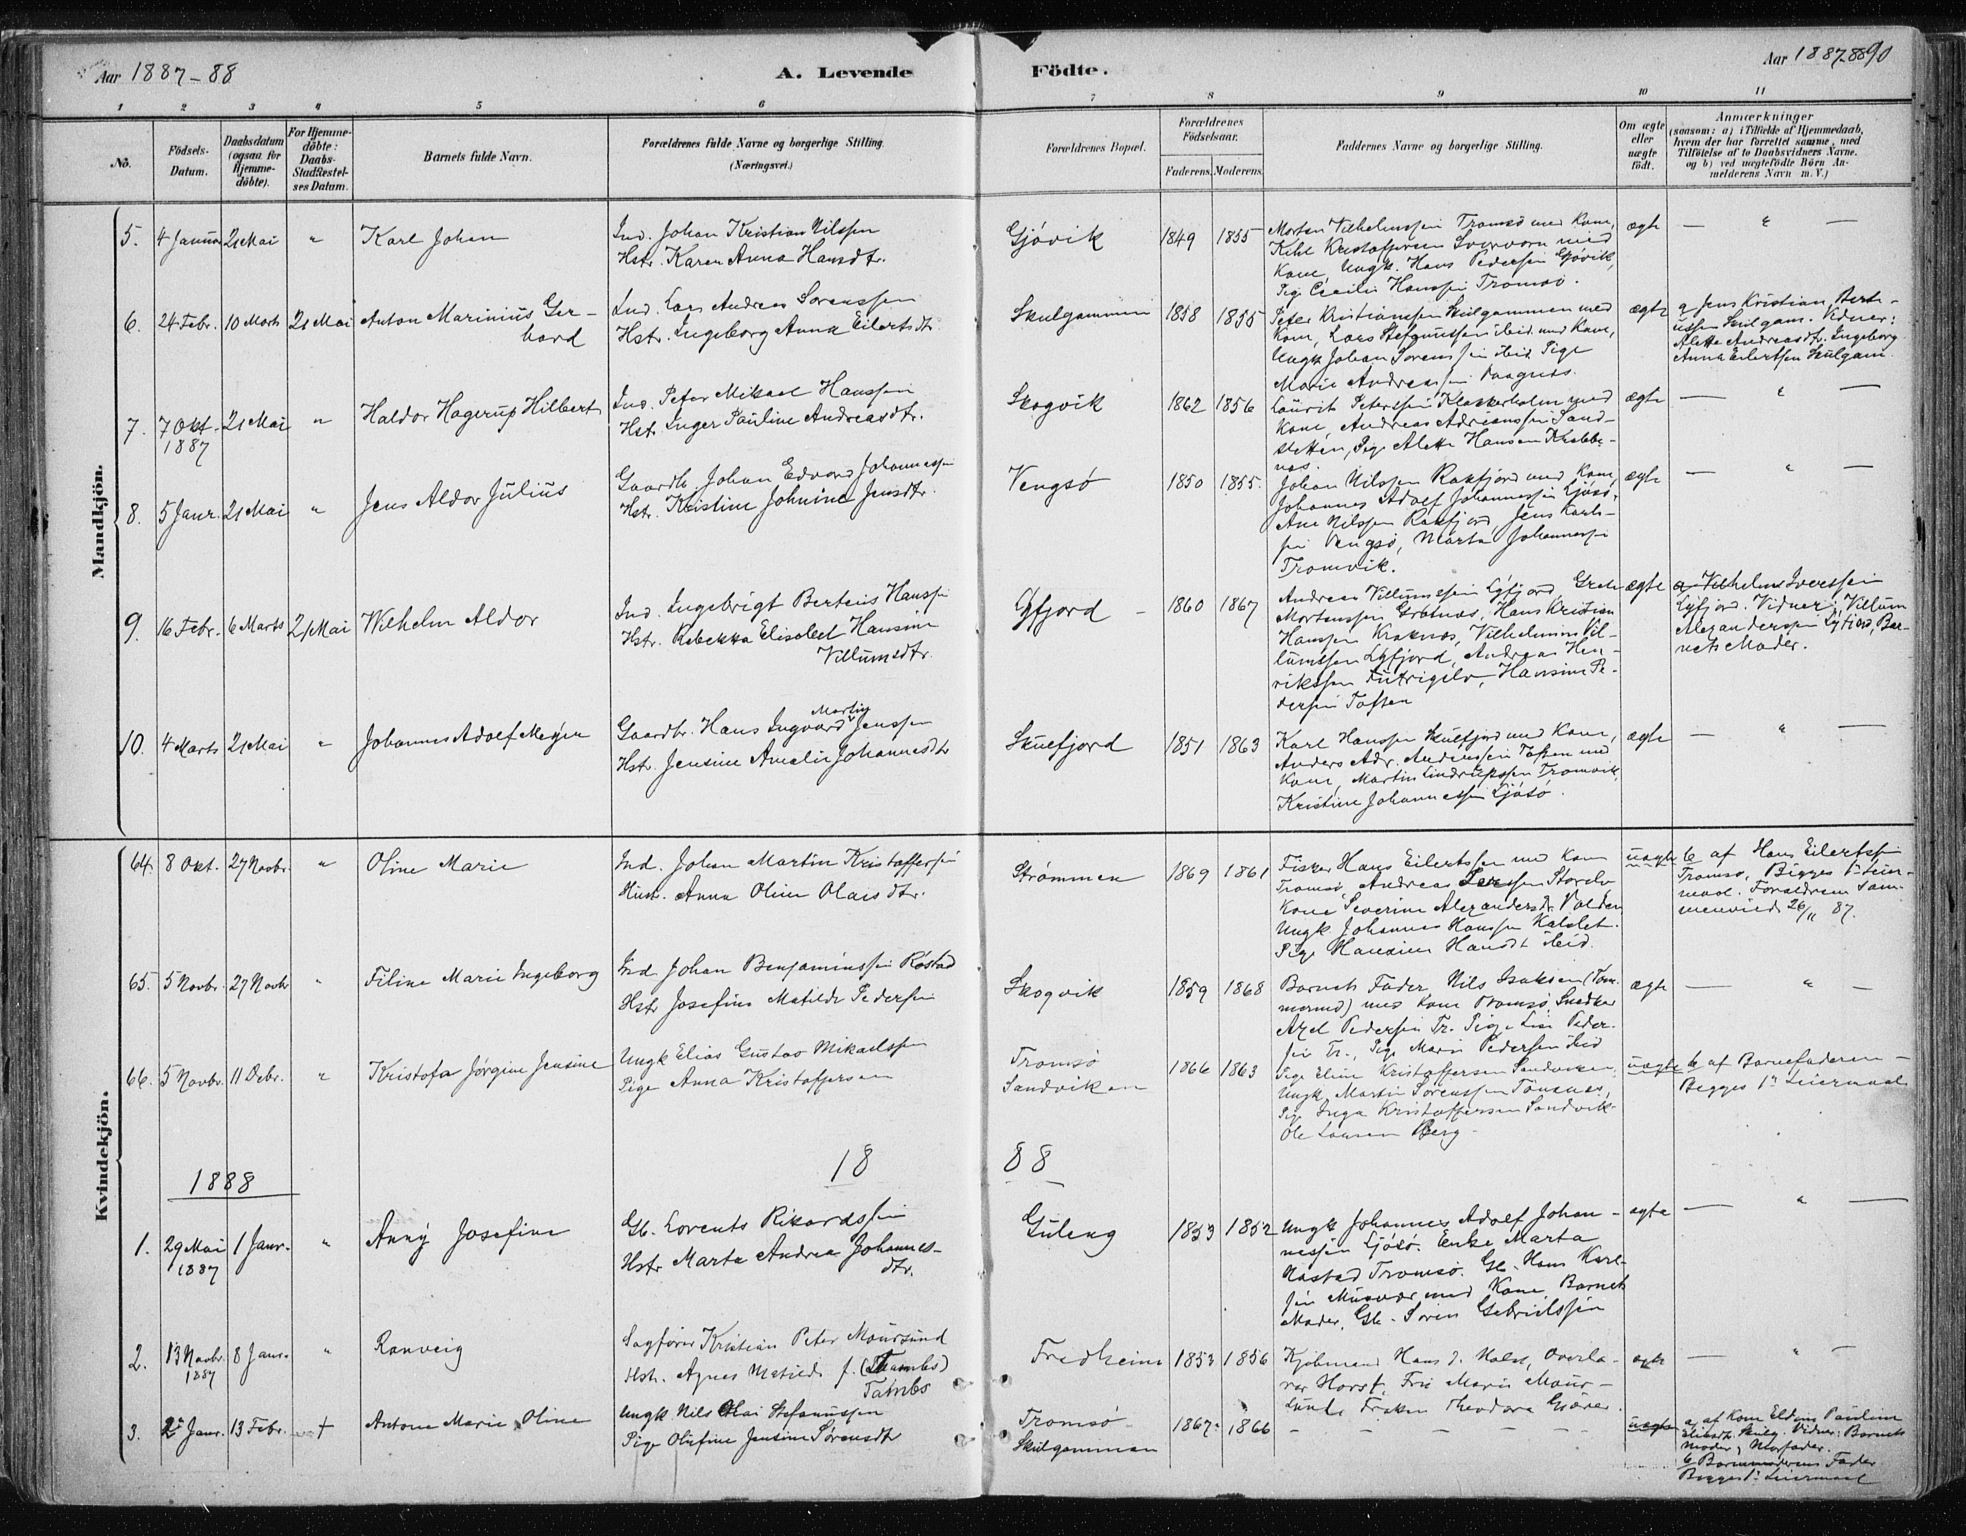 Aar 1887-88
A. Levende
Födte.
Aar 1887-88
90
1 2 3 4 5 6 7 8 9 10 11
No.
Födsels-
Datum.
Daabsdatum
(ogsaa for
Hjemme-
döbte).
For Hjemme-
döbte:
Daabs-
Stadfæstel-
ses Datum.
Barnets fulde Navn.
Forældrenes fulde Navne og borgerlige Stilling.
(Næringsvei.)
Forældrenes Bopæl.
Forældrenes
Födselsaar.
Faderens. Moderens.
Faddernes Navne og borgerlige Stilling.
Om ægte
eller
uægte
födt.
Anmærkninger
(saasom: a) i Tilfælde af Hjemmedaab,
hvem der har forrettet samme, med
Tilföielse af to Daabsvidners Navne.
og b) ved uægtefödte Börn An-
melderens Navn m. V.)
Mandkjön.
5. 4 Januar 21 Mai " Karl Johan
Ind. Johan Kristian Nilssen
Hstr. Karen Anna Hansdtr.
Gjövik 1849 1855
Morten Vilhelmssen Tromsø med Kone,
Kone, Ungk. Hans Pedersen Gjövik,
Pige Cecilie Hanssen Tromsø.
ægte — " —
6. 24 Febr. 10 Marts 21 Mai Anton Marinius Ger-
hard
Ind. Lars Andreas Sørenssen
Hstr. Ingeborg Anna Eilertsdtr.
Skulgammen 1858 1855
Peter Kristianssen Skulgammen med
Kone, Lars Stefanussen ibid. med Kone,
Ungk. Johan Sørenssen ibid. Pige
Marie Andreassen
ægte
a, Jens Kristian Bert-
ussen Skulgam. Vidner:
Alette Andreasdtr. Ingeborg
Anna Eilertsen Skulgam.
7. 7 Okt. 21 Mai " Haldor Hagerup Hilbert
1887
Ind. Peter Mikael Hanssen
Hstr. Inger Pauline Andreasdtr.
Skogvik 1862 1856
Laurits Peterssen med
Kone, Andreas Adrianssen Sand-
sletten, Pige Alette Hansen Krabbe-
næs.
ægte — " —
8. 5 Janr. 21 Mai " Jens Aldor Julius
Gaardb. Johan Edvard Johannessen
Hst. Kristine Johnine Jensdtr.
Vengsø 1850 1855.
Johan Nilssen Rakfjord med Kone,
Johannes Adolf Johannessen Ljøsø,
Ane Nilssen Rakfjord, Jens Karls-
sen Vengsø, Marta Johannessen
Tromvik.
ægte — " —
9. 16 Febr. 6 Marts 21 Mai Wilhelm Aldor
Ind. Ingebrigt Berteus Hanssen
Hstr. Rebekka Elisabet Hansine
Villumsdtr.
Lyfjord 1860 1867
Andreas Villumssen Lyfjord Grete
Mortenssen Grøtnæs, Hans Kristian
Hanssen Kraknæs, Vilhelmine Vil-
lumssen Lyfjord, Andreas Hen-
rikssen Futrigelv, Hansine Pe-
dersen Toften
ægte
a, Vilhelm Iverssen
Lyfjord. Vidner: Villum
Alexanderssen Lyfjord, Bar-
nets Moder.
10. 4 Marts 21 Mai " Johannes Adolf Meyer
Martin
Gaardbr. Hans Ingvard Jenssen
Hstr. Jensine Amalie Johannesdtr
Skulfjord 1851 1863
Karl Hanssen Skulfjord med Kone,
Anders Adr. Anderssen Toften med
Kone, Martin Lindrupssen Tromvik,
Kristine Johannessen Ljøsø.
ægte — " —
Kvindekjön.
64. 8 Okt. 27 Novbr. " Oline Marie
Ind. Johan Martin Kristoffersen
Hust. Anna Oline Olaisdtr.
Strømmen 1869 1861
Fisker Hans Eilertssen med Kone
Tromsø, Andreas
Kone Severine Alexandersdtr.
Ungk Johannes Hanssen Kalslet.
Pige Hansine Hansdt ibid.
uægte
b af Hans Eilertssen
Tromsø, Begges 1ste Leier-
maal. Forældrene Sam-
menvied 26/11 87.
65. 5 Novbr. 27 Novbr " Filine Marie Ingeborg
Ind Johan Benjaminssen Røstad
Hstr Josefine Matilde Pedersen
Skogvik 1859 1868
Barnets Fader Nils Isaksen (Tøm-
mermd) med Kone Tromsø, Snedker
Axel Pedersen Tr. Pige Lise Peder-
sen Tr., Pige Marie Pedersen ibid
ægte — " —
66. 5 Novbr. 11 Debr. " Kristofa Jørgine Jensine
Ungk Elias Gustav Mikaelssen
Pige Anna Kristoffersen
Tromsø
Sandviken
1866 1863
Pige Eline Kristoffersen Sandviken,
Ungk. Martin Sørenssen Tønsnes,
Pige Inga Kristoffersen Sandvik-
Ole Larsen Berg-
uægte
b af Barnefaderen —
Begges 1ste Leiermaal
1888
18 88
1. 29 Mai 1 Janr. " Anny Josefine
1887
Gb. Lorents Rikardssen
Hstr Marta Andrea Johannes-
dtr.
Guleng 1853 1852
Ungk Johannes Adolf Johan-
nessen Ljøsø. Enke Marta
Nøstad Tromsø. Gb. Hans Karl-
sen Musvær med Kone, Barnets
Moder, Gb. Søren Gabrielssen
ægte — " —
2. 13 Novbr. 8 Janr. " Ranveig
1887
Sagfører Kristian Peter Moursund
Hst. Agnes Matilde f. (Thambs)
Tambs
Fredheim 1853 1856
Kjøbmand Hans J. Holst, Overlæ-
rer Horst, Fru Marie Mour-
sund, Frøken Theodora Gjæver.
ægte — " —
3. 25 Janr. 13 Febr. + Antone Marie Oline
Ungk Nils Olai Stefanussen
Pige Olufine Jensine Sørensdtr
Tromsø-
Skulgammen
1867 1866
— — — — — —
uægte
a, af Kone Eldine Pauline
Eliasdtr. Skulg. Vidner: Barnets
Moder, Morfader.
b Barnemoderens Fader.
Begges 1ste Leiermaal